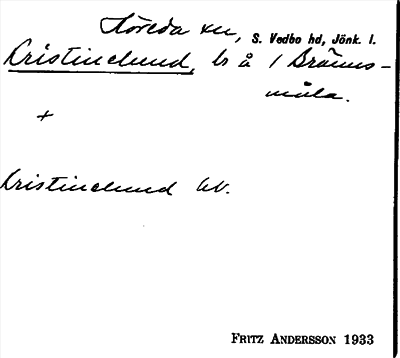 Höreda sn, S. Vedbo hd, Jönk. l.
Kristinelund, ls å 1 Bränns-
måla.
+
Kristinelund GV.
FRITZ ANDERSSON 1933